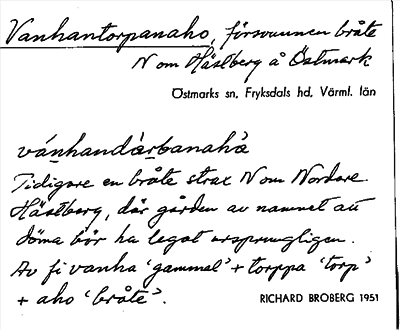 Vanhantorpanaho, försvunnen bråte
N om Hästberg å Östmark
Östmarks sn, Fryksdals hd, Värml. län
vánhandàrbanahà
Tidigare en bråte strax N om Nordare
Hästberg, där gården av namnet att
döma bör ha legat ursprungligen.
Av fi vanha 'gammal' + torppa 'torp'
+ aho 'bråte'.
RICHARD BROBERG 1951